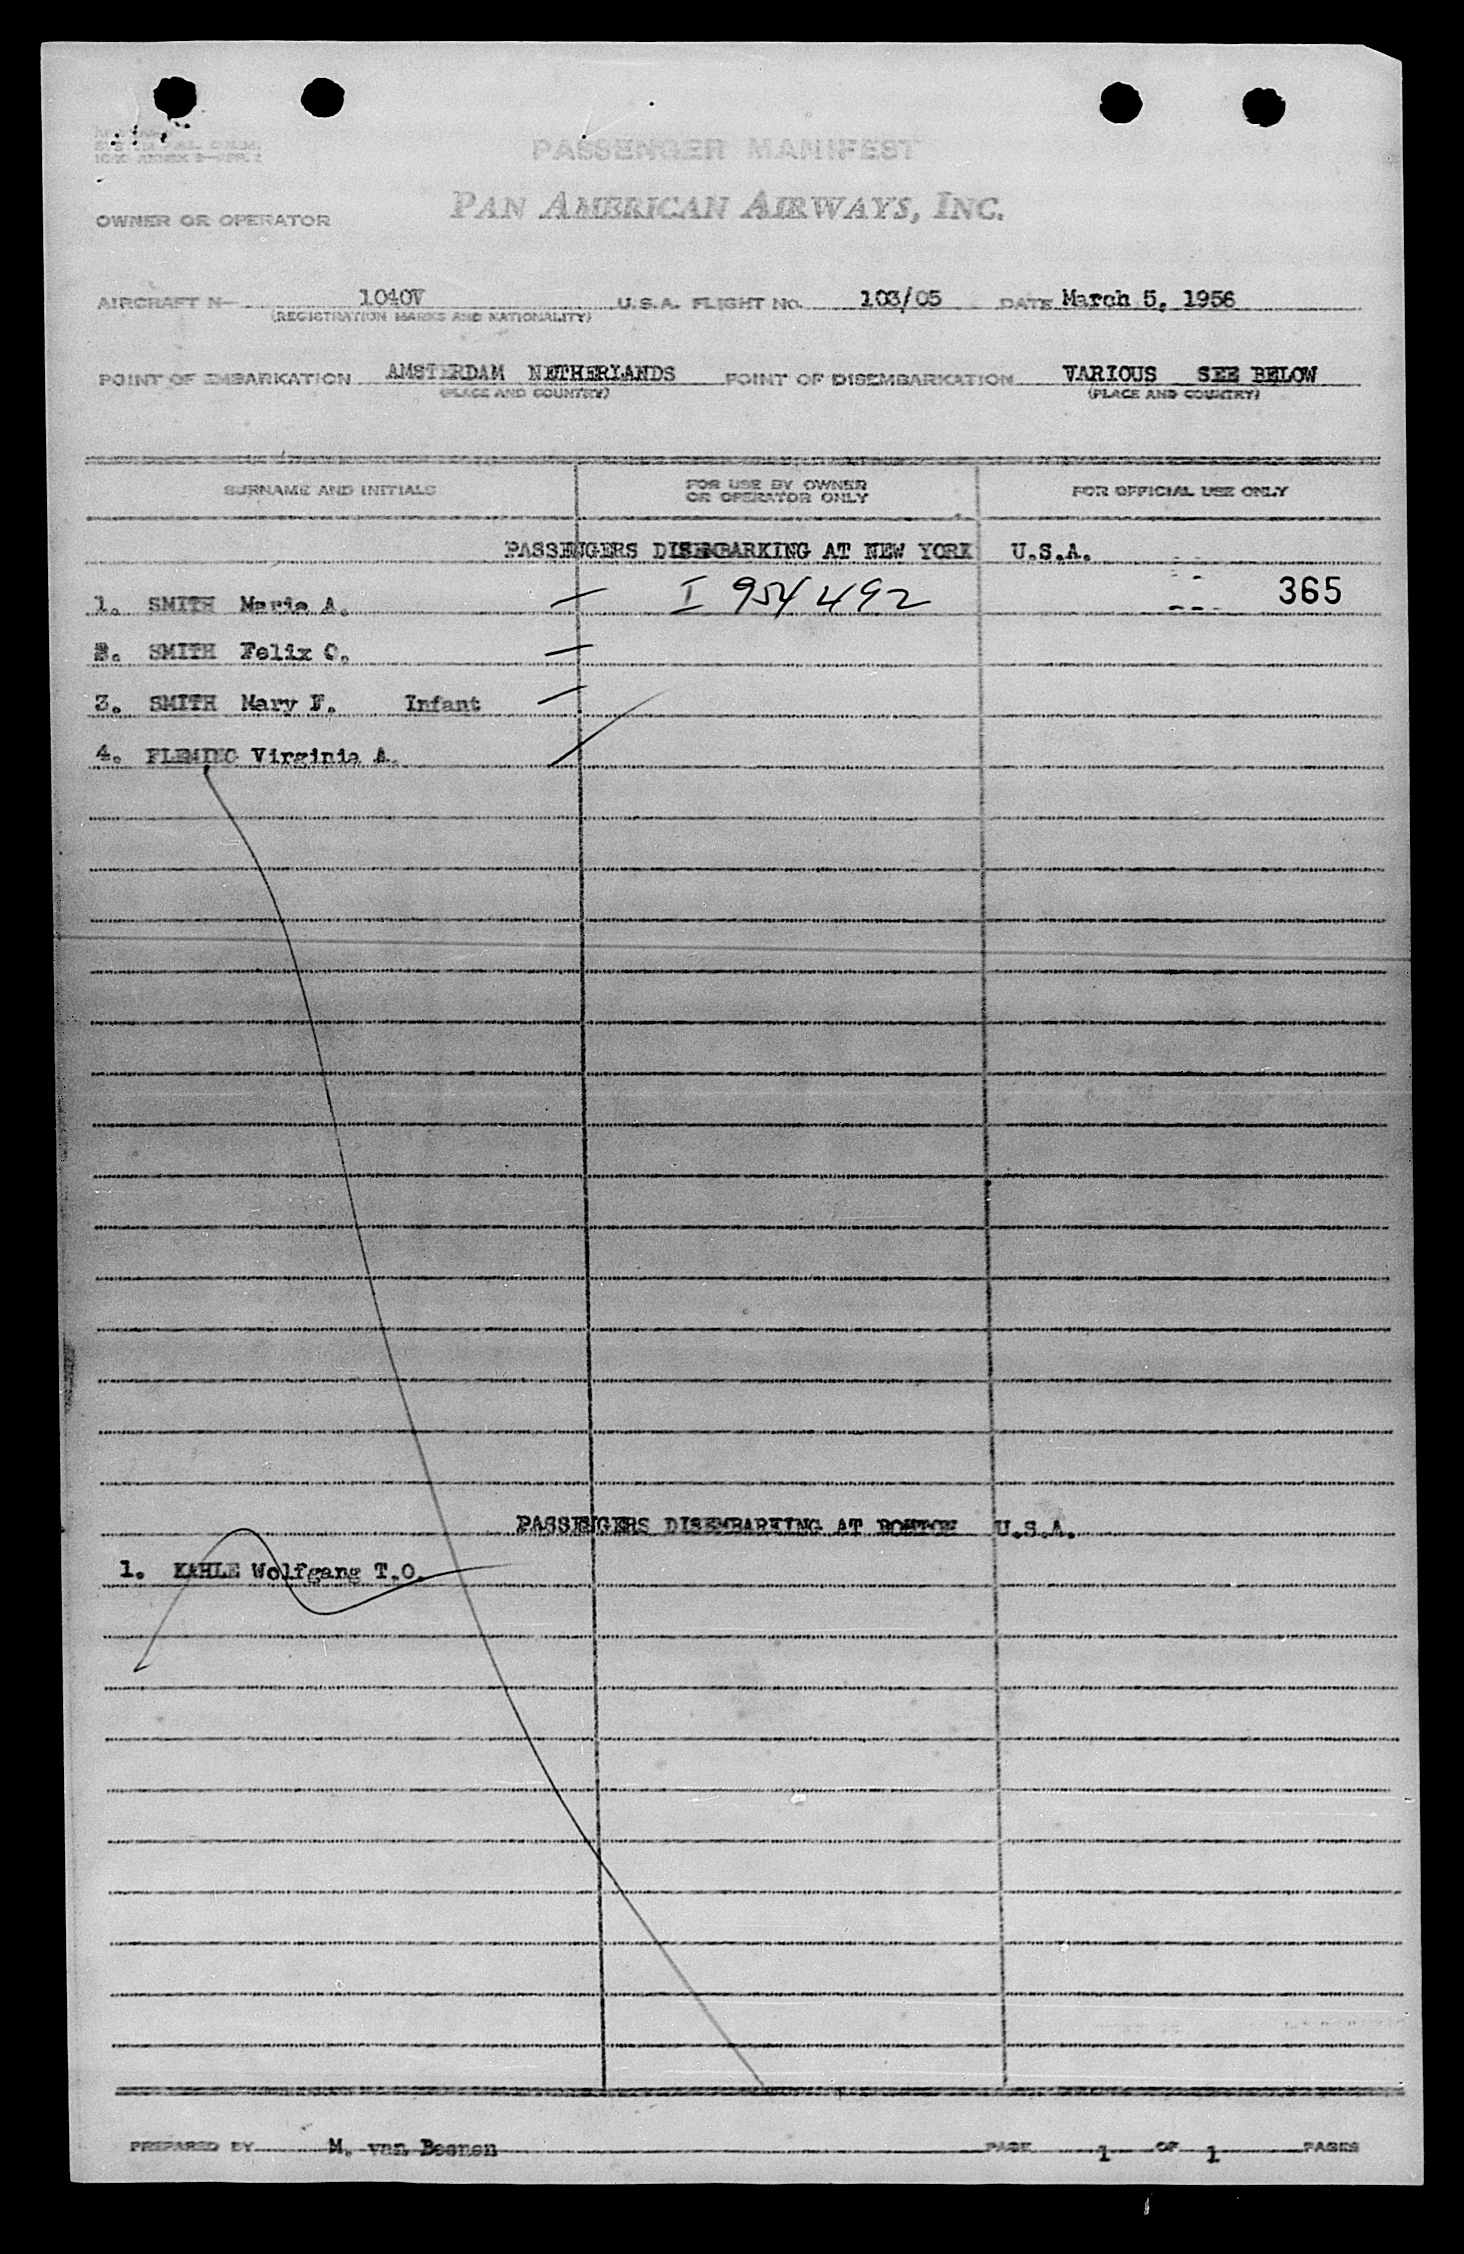 PASSENGER MANIFEST
PAN AMERICAN AIRWAYS, INC.
OWNER OR OPERATOR
AIRCRAFT N— 1040V U.S.A. FLIGHT NO. 103/05 DATE March 5, 1956
(REGISTRATION MARKS AND NATIONALITY)
POINT OF EMBARKATION AMSTERDAM NETHERLANDS POINT OF DISEMBARKATION VARIOUS SEE BELOW
(PLACE AND COUNTRY) (PLACE AND COUNTRY)
SURNAME AND INITIALS FOR USE BY OWNER OR OPERATOR ONLY FOR OFFICIAL USE ONLY
PASSENGERS DISEMBARKING AT NEW YORK U.S.A.
1. SMITH Maria A. — I 954492 365
2. SMITH Felix O. —
3. SMITH Mary F. Infant —
4. FLEMING Virginia A.
PASSENGERS DISEMBARKING AT BOSTON U.S.A.
1. KAHLE Wolfgang T.O.
PREPARED BY M. van Beenen PAGE 1 OF 1 PAGES